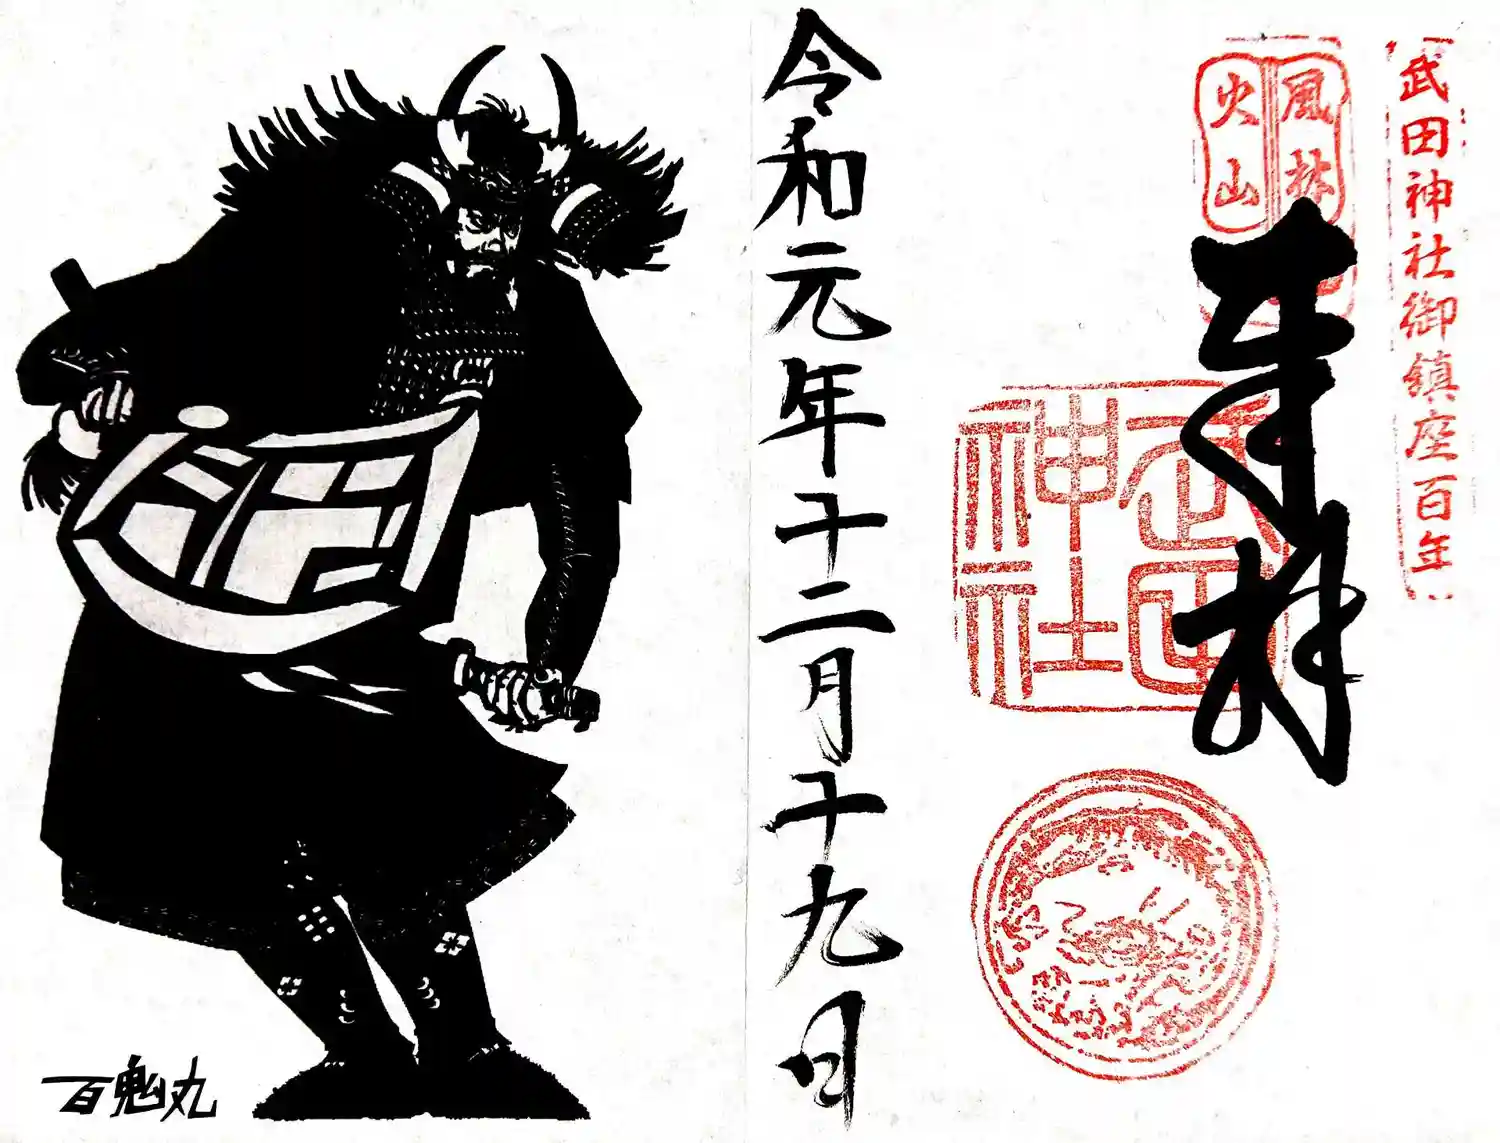 武田神社御鎮座百年
風林
火山
奉拝
武田
神社
令和元年十二月十九日
百鬼丸